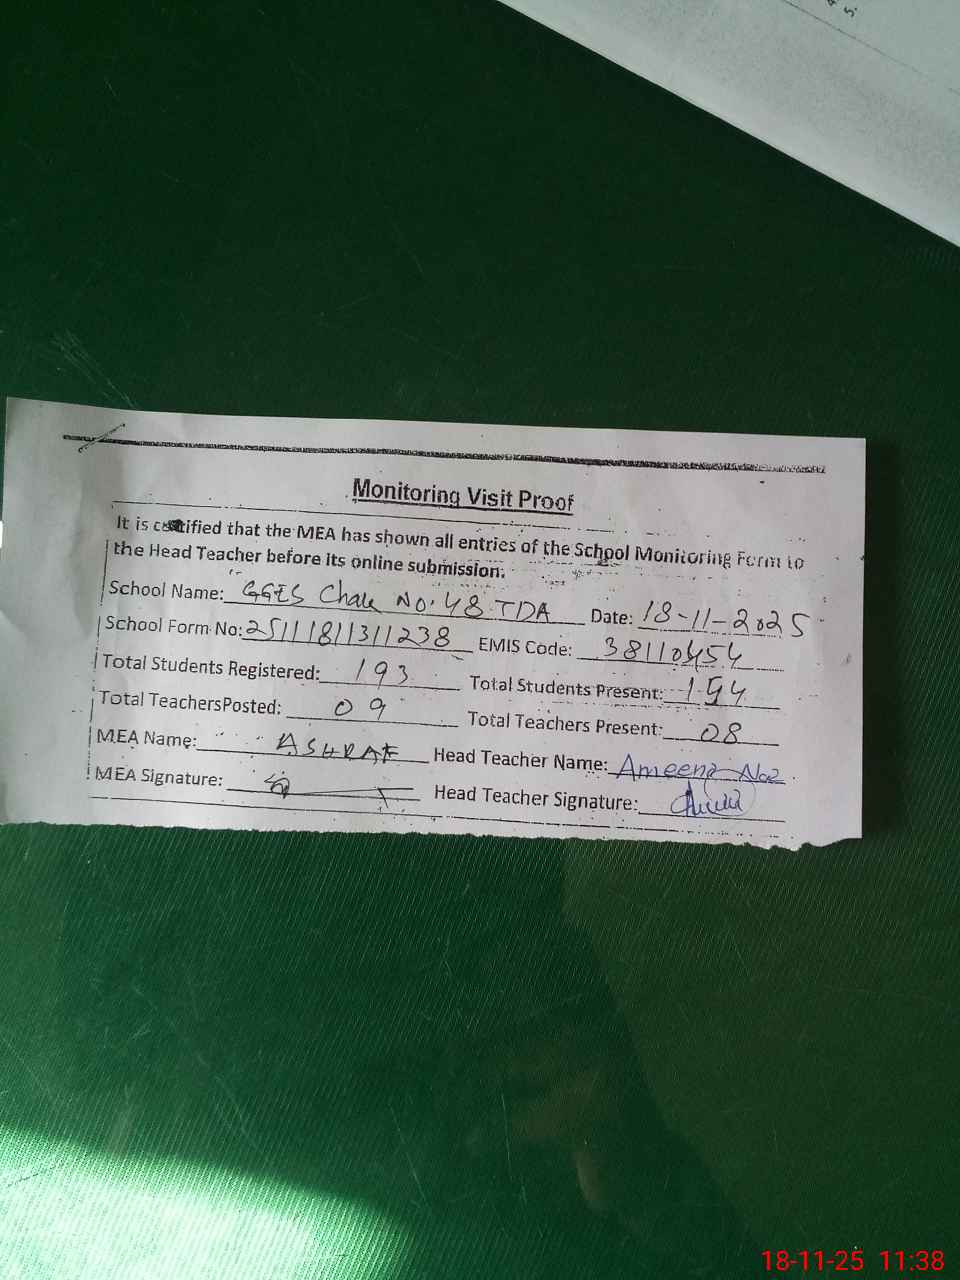 Monitoring Visit Proof
It is certified that the MEA has shown all entries of the School Monitoring Form to
the Head Teacher before its online submission.
School Name: GGES Chak No. 48 TDA Date: 18-11-2025
School Form No: 25111811311238 EMIS Code: 38110454
Total Students Registered: 193 Total Students Present: 154
Total TeachersPosted: 09 Total Teachers Present: 08
MEA Name: ASHRAF Head Teacher Name: Ameena Naz
MEA Signature: Head Teacher Signature:
18-11-25 11:38